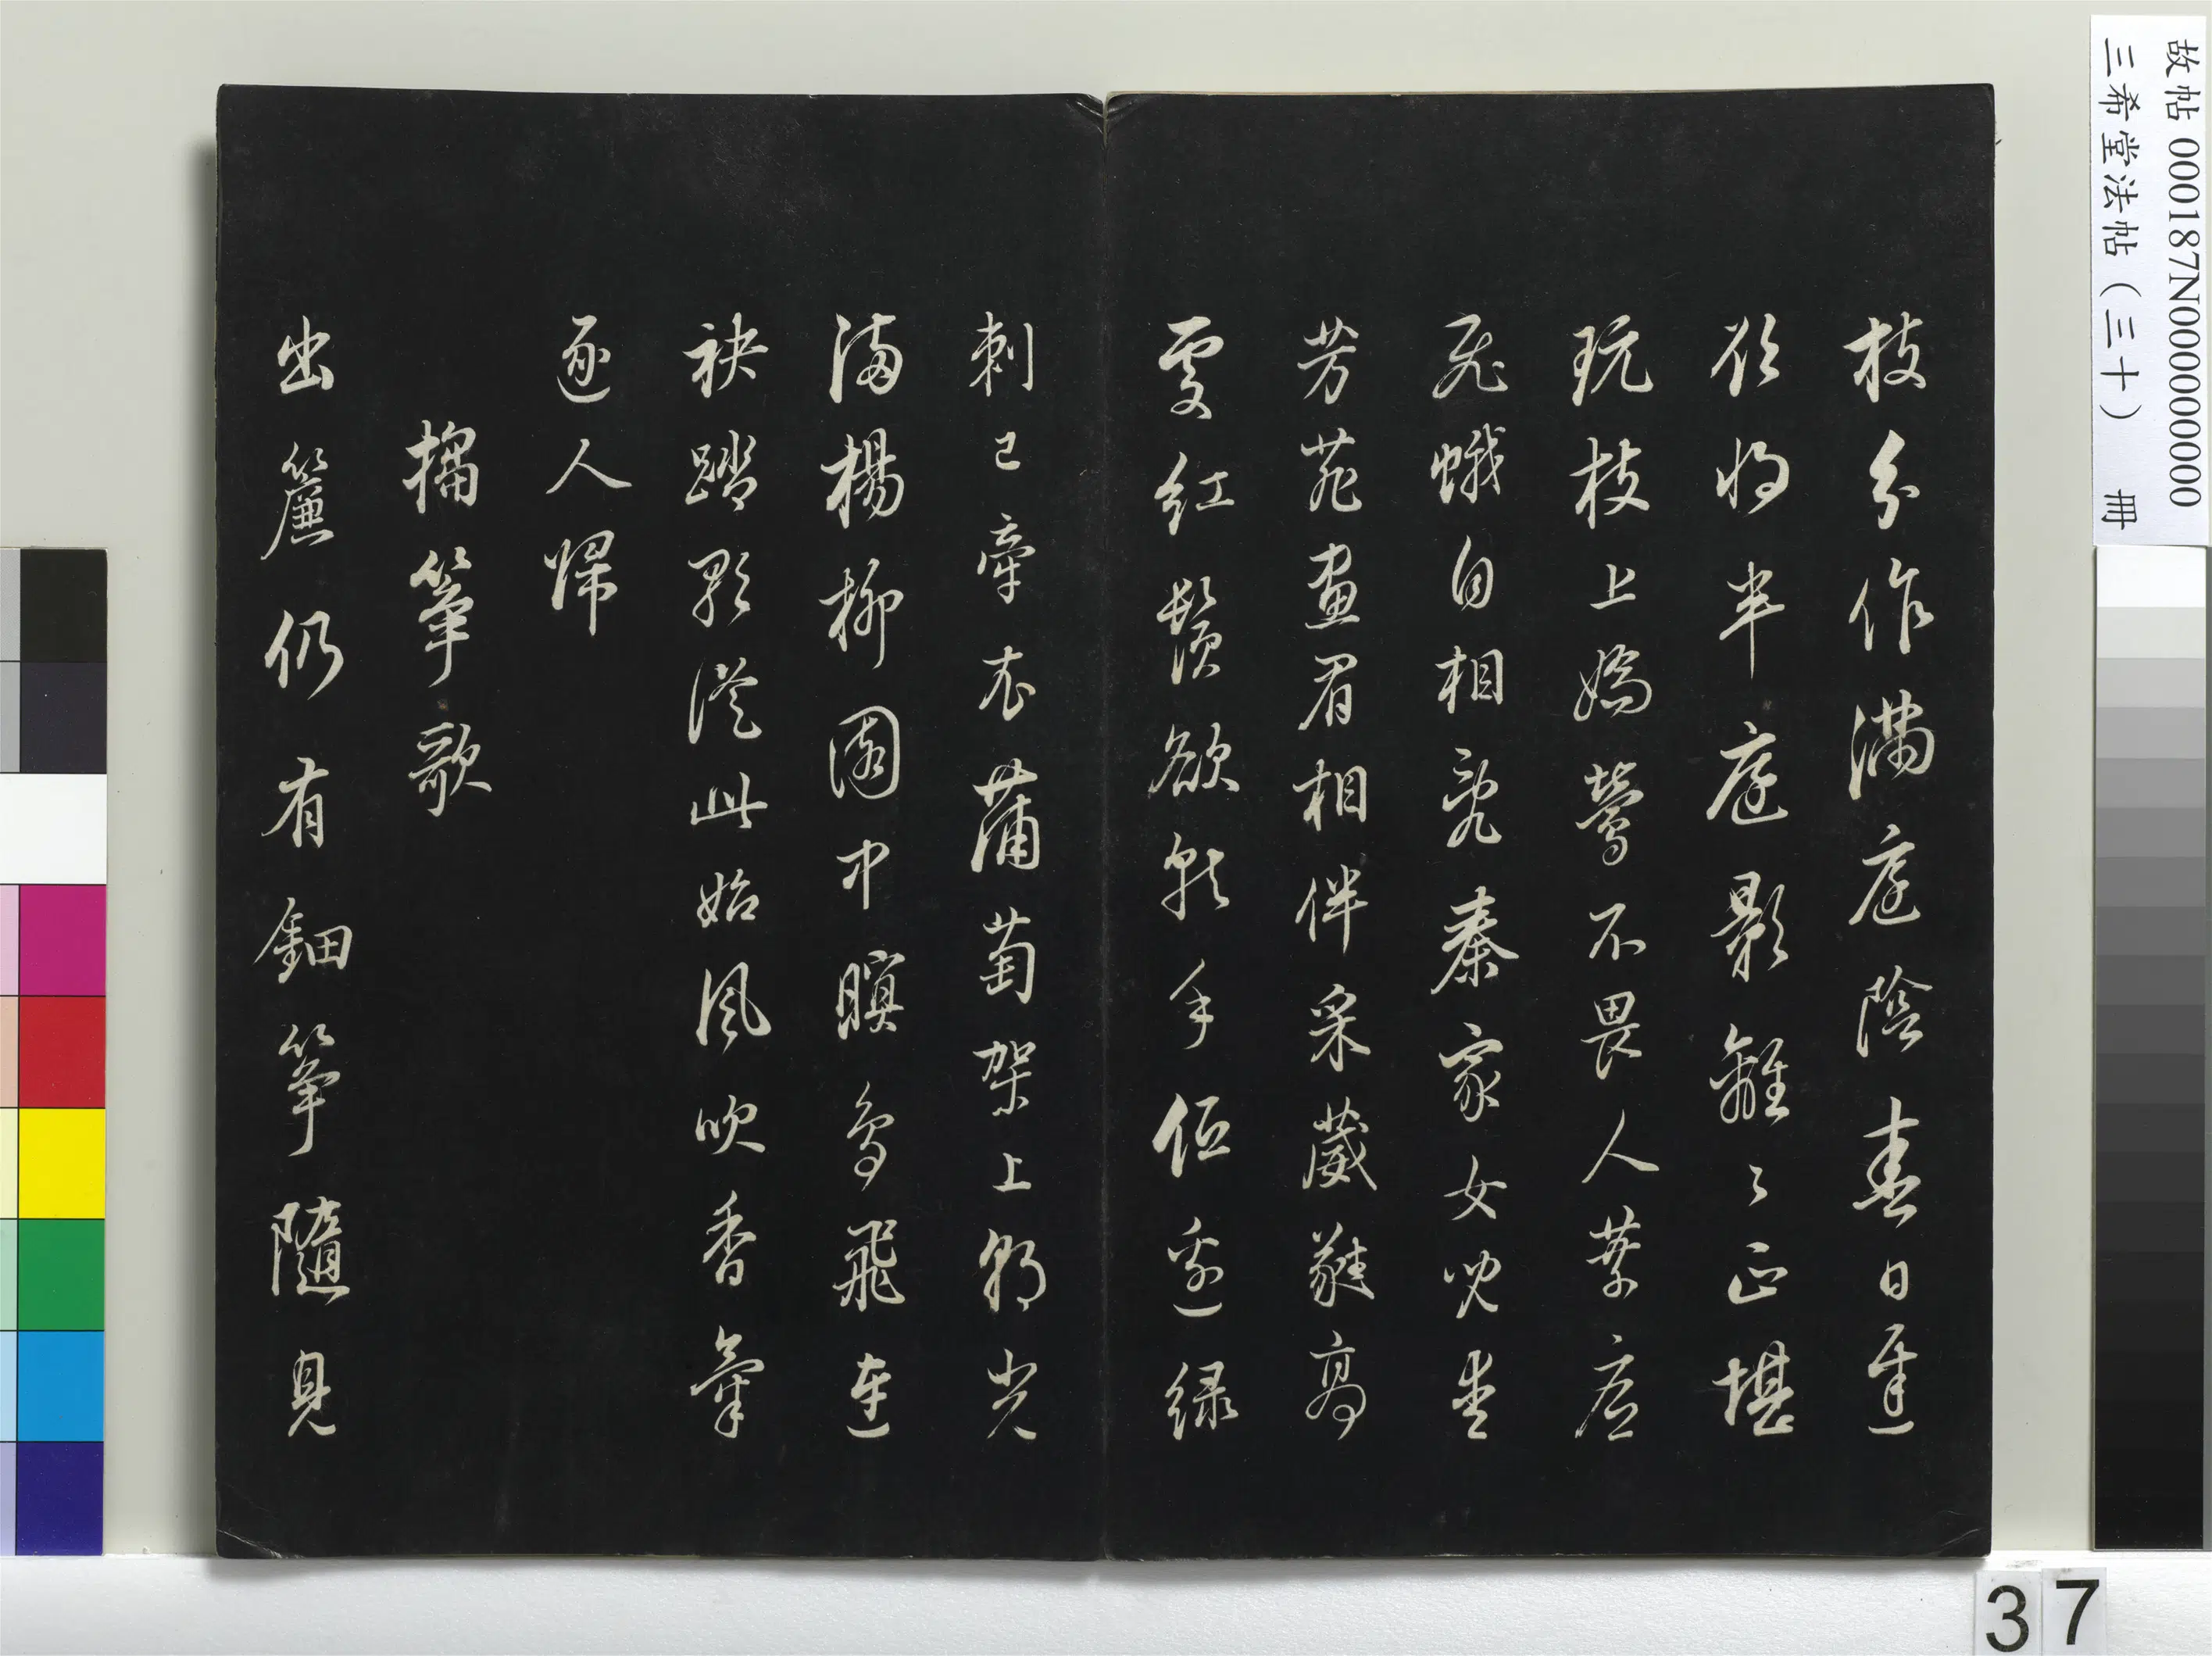 故帖 000187N000000000
三希堂法帖（三十） 冊
枝分作滿庭陰春日遲
欲將半庭影離〻正堪
玩枝上嬌鶯不畏人葉底
飛蛾自相亂秦家女兒愛
芳菲畫眉相伴采葳蕤高
處紅鬚欲就手低邊綠
刺已牽衣蒲萄架上朝光
滿楊柳園中暝鳥飛連
袂踏歌從此始風吹香氣
逐人歸
搊箏歌
出簾仍有鈿箏隨見
37